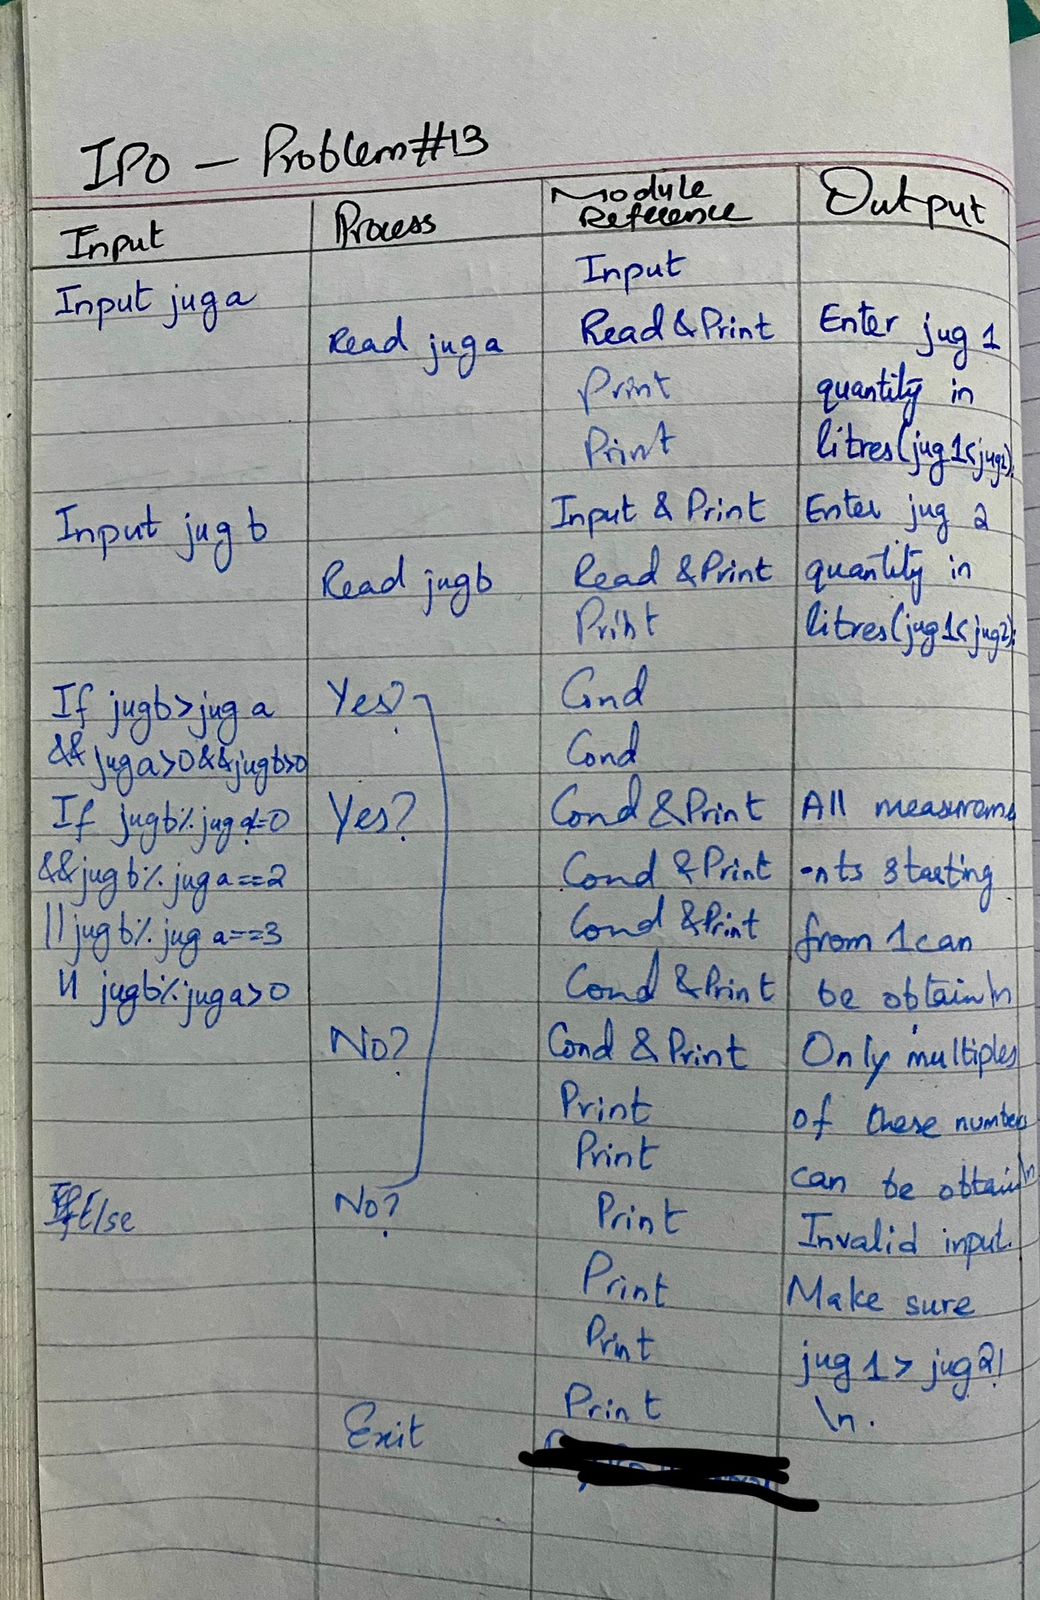 IPO — Problem#13
Input Process Module Reference Output
Input
Input jug a
Read jug a Read & Print Enter jug 1
Print quantity in
Print litres(jug1<jug2):
Input jug b Input & Print Enter jug 2
Read jugb Read & Print quantity in
Print litres(jug1<jug2):
If jugb>jug a Yes? Cond
&&juga>0&&jugb>0 Cond
If jugb%juga!=0 Yes? Cond & Print All measurem
&&jugb%juga==2 Cond & Print -nts starting
||jugb%juga==3 Cond & Print from 1 can
|| jugb%juga>0 Cond & Print be obtain\n
No? Cond & Print Only multiples
Print of these numbers
Print can be obtain\n
Else No? Print Invalid input.
Print Make sure
Print jug1>jug2!
Exit Print \n.